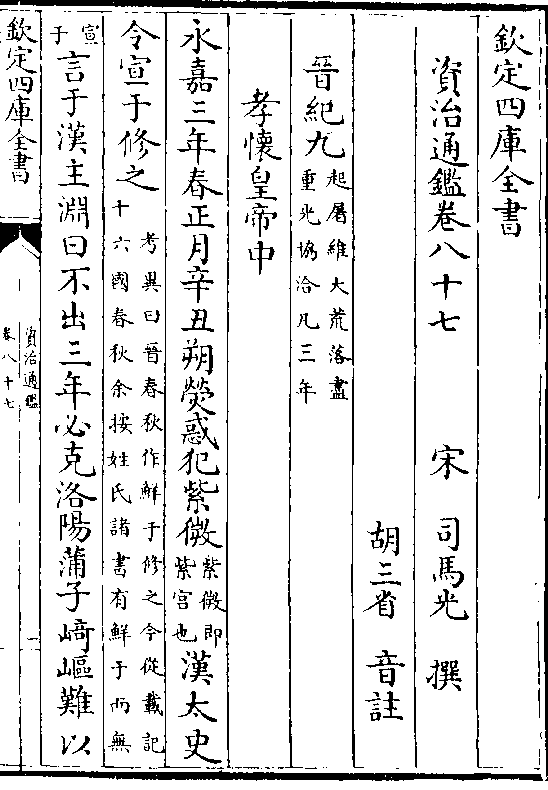 欽定四庫全書
資治通鑑卷八十七
宋 司馬光 撰
胡三省 音註
晉紀九起屠維大荒落盡重光協洽凡三年
孝懷皇帝中
永嘉三年春正月辛丑朔熒惑犯紫微紫微即紫宫也漢太史
令宣于修之考異曰晉春秋作鮮于修之今從載記十六國春秋余按姓氏諸書有鮮于而無
宣于言于漢主淵曰不出三年必克洛陽蒲子崎嶇難以
欽定四庫全書
資治通鑑
卷八十七